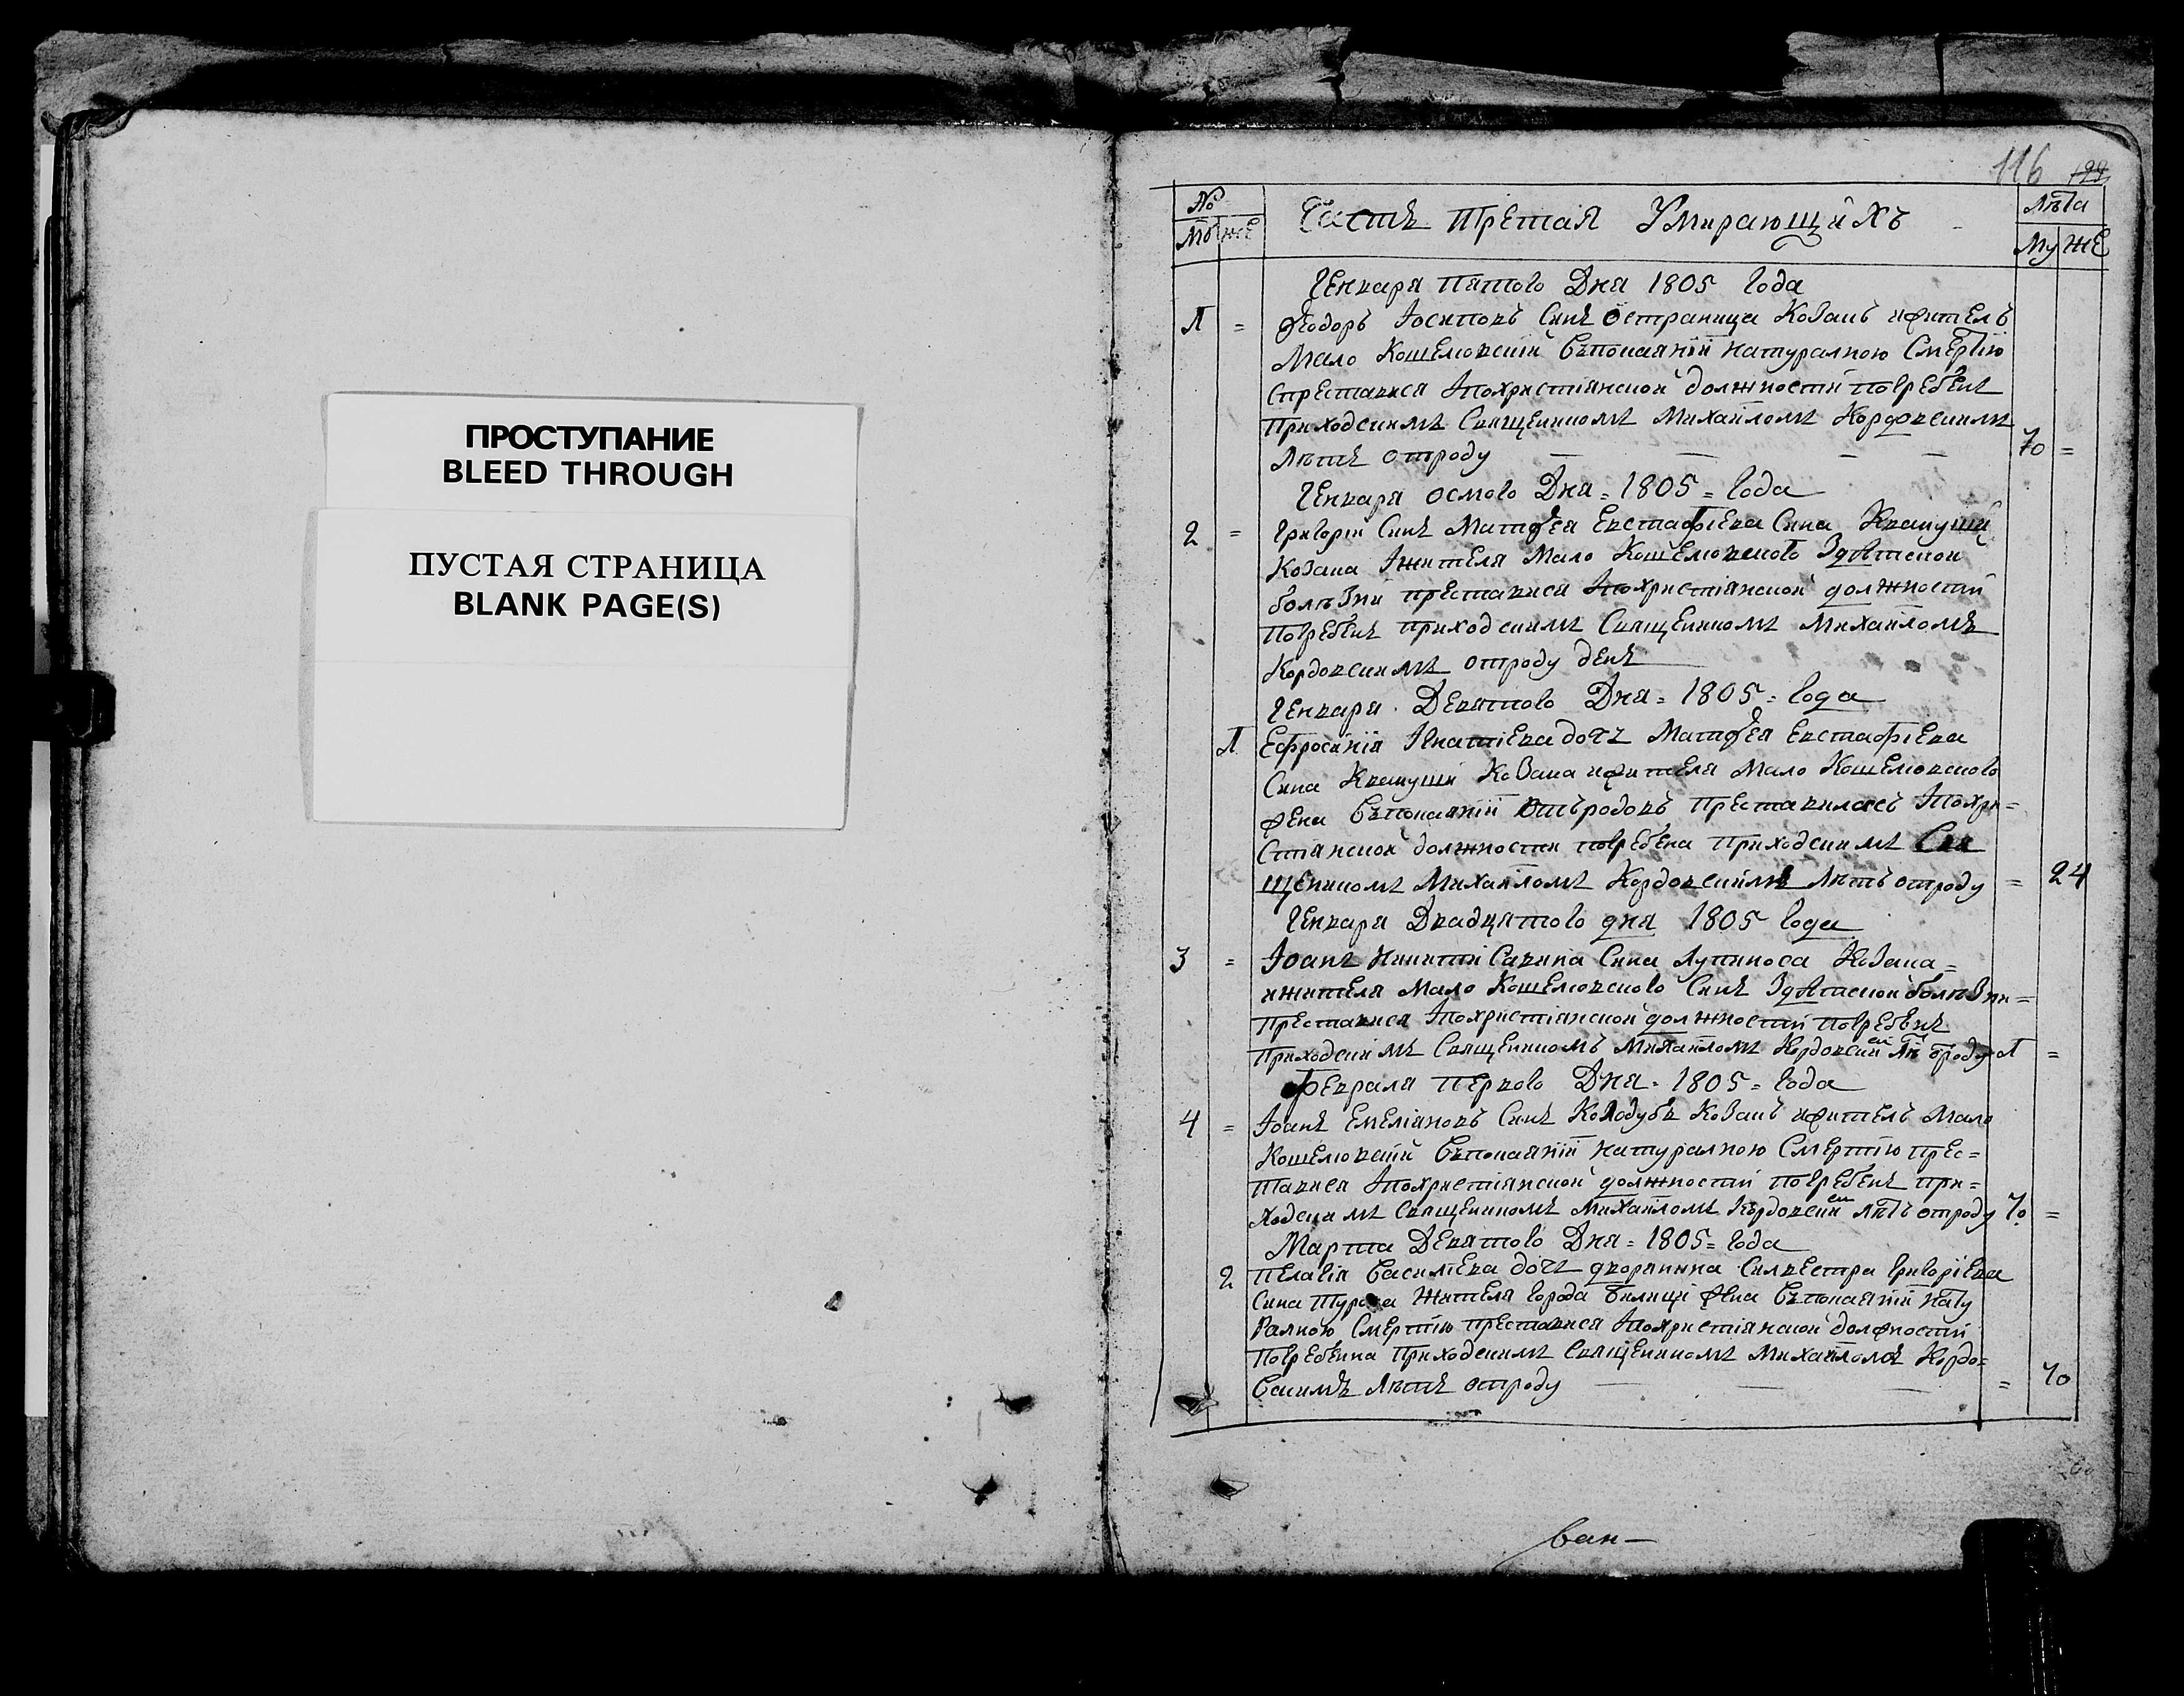 ПРОСТУПАНИЕ
BLEED THROUGH
ПУСТАЯ СТРАНИЦА
BLANK PAGE(S)
116
№ Часть третая Умирающихъ Лѣта
Му же Му же
Генваря пятого Дня 1805 года
1 = Ѳеодоръ Іосиповъ Синъ Остраница Козакъ ижителъ
Мало Кошелювскій Съпокаянїй натуралною Смертїю
Преставися Ипохристіянской должности погребенъ
Приходскимъ Священикомъ Михаиломъ Кордовскимъ
Лѣтъ отроду 70 =
Генваря осмого Дня = 1805 = года
2 = Григорїй Синъ Матѳея Евстафіева Сина Квакуши
Козака Ижителя Мало Кошелювского Здѣтской
болѣзни преставися Ипохристіянской должности
Погребенъ приходскимъ Священикомъ Михаиломъ
Кордовскимъ отроду денъ
Генваря Девятого Дня = 1805 = года
1 Ефросинія Игнатіева дочъ Матѳея Евстафіева
Сина Квакуши Козака ижителя Мало Кошелювского
жена Съпокаянїй Отъродовъ Преставиласъ Ипохри=
Стіянской должности погребена Приходскимъ Свя
щеникомъ Михаиломъ Кордовскимъ Лѣтъ отроду = 24
Генваря Двадцятого дня 1805 года
3 = Іоанъ Никити Савина Сина Лупиноса Козака =
ижителя Мало Кошелювского Синъ Здѣтской болѣзни =
Преставися Ипохристіянской должности погребенъ
Приходскимъ Священикомъ Михаиломъ Кордовским Лѣ отроду 1 =
Февраля первого Дня = 1805 = года
4 = Іоанъ Емеліяновъ Синъ Колодубъ Козакъ ижителъ Мало
Кошелювскій Съпокаянїй натуралною Смертїю прес=
тавися Ипохристіянской должности погребенъ при=
ходскимъ Священикомъ Михаиломъ Кордовским лѣтъ отроду 70 =
Марта Девятого Дня = 1805 = года
2 Пелагія Василіева дочъ дворянина Силвестра Григоріева
Сина Жителя города жена Съпокаянїй нату
Ралною Смертїю преставися Ипохристіянской должности
Погребена Приходскимъ Священикомъ Михаиломъ Кордо=
Вскимъ Лѣтъ отроду = 70
ван—